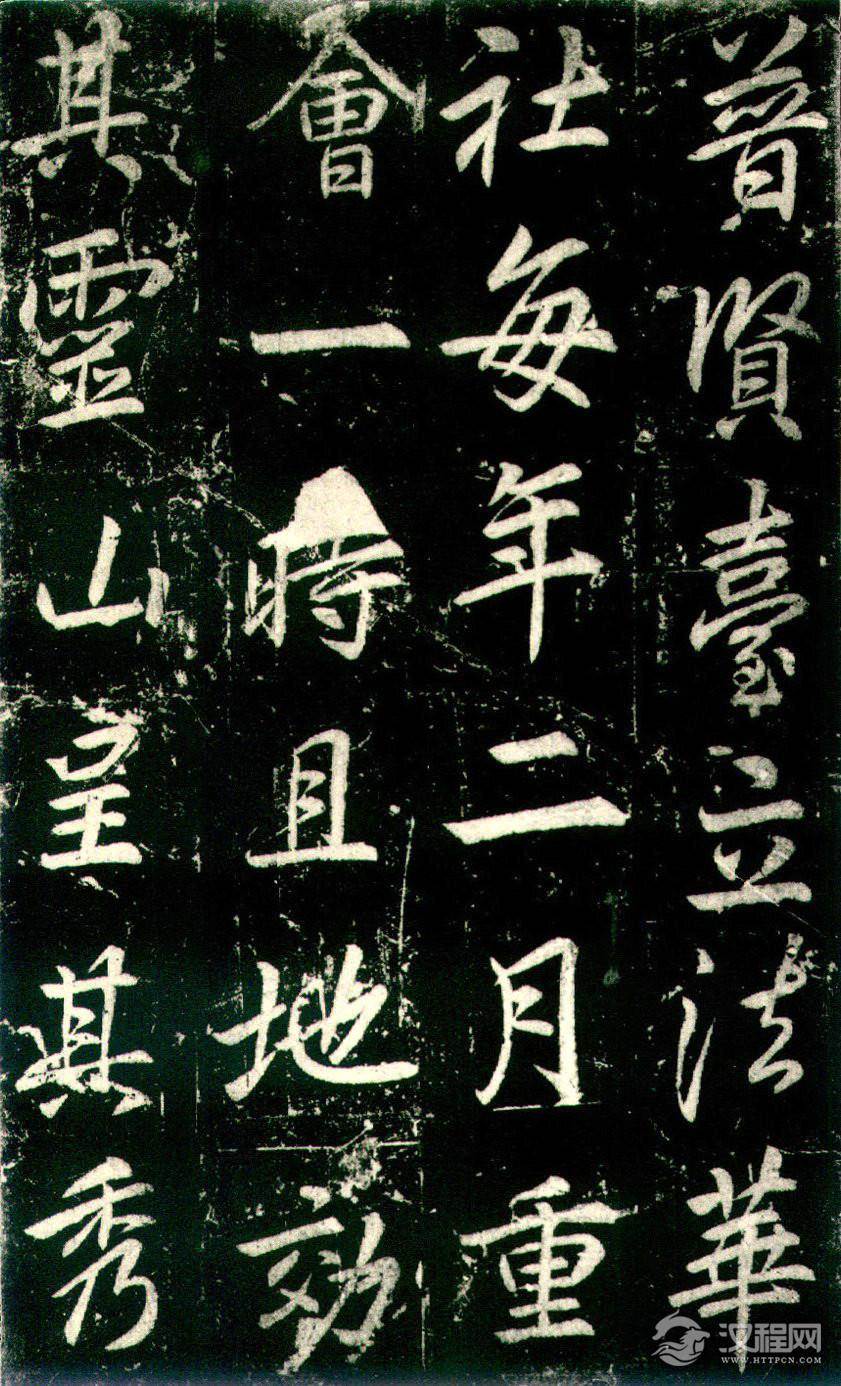 普賢臺立法華
社每年二月重
會一時且地効
其靈山呈其秀
汉程网
WWW.HTTPCN.COM